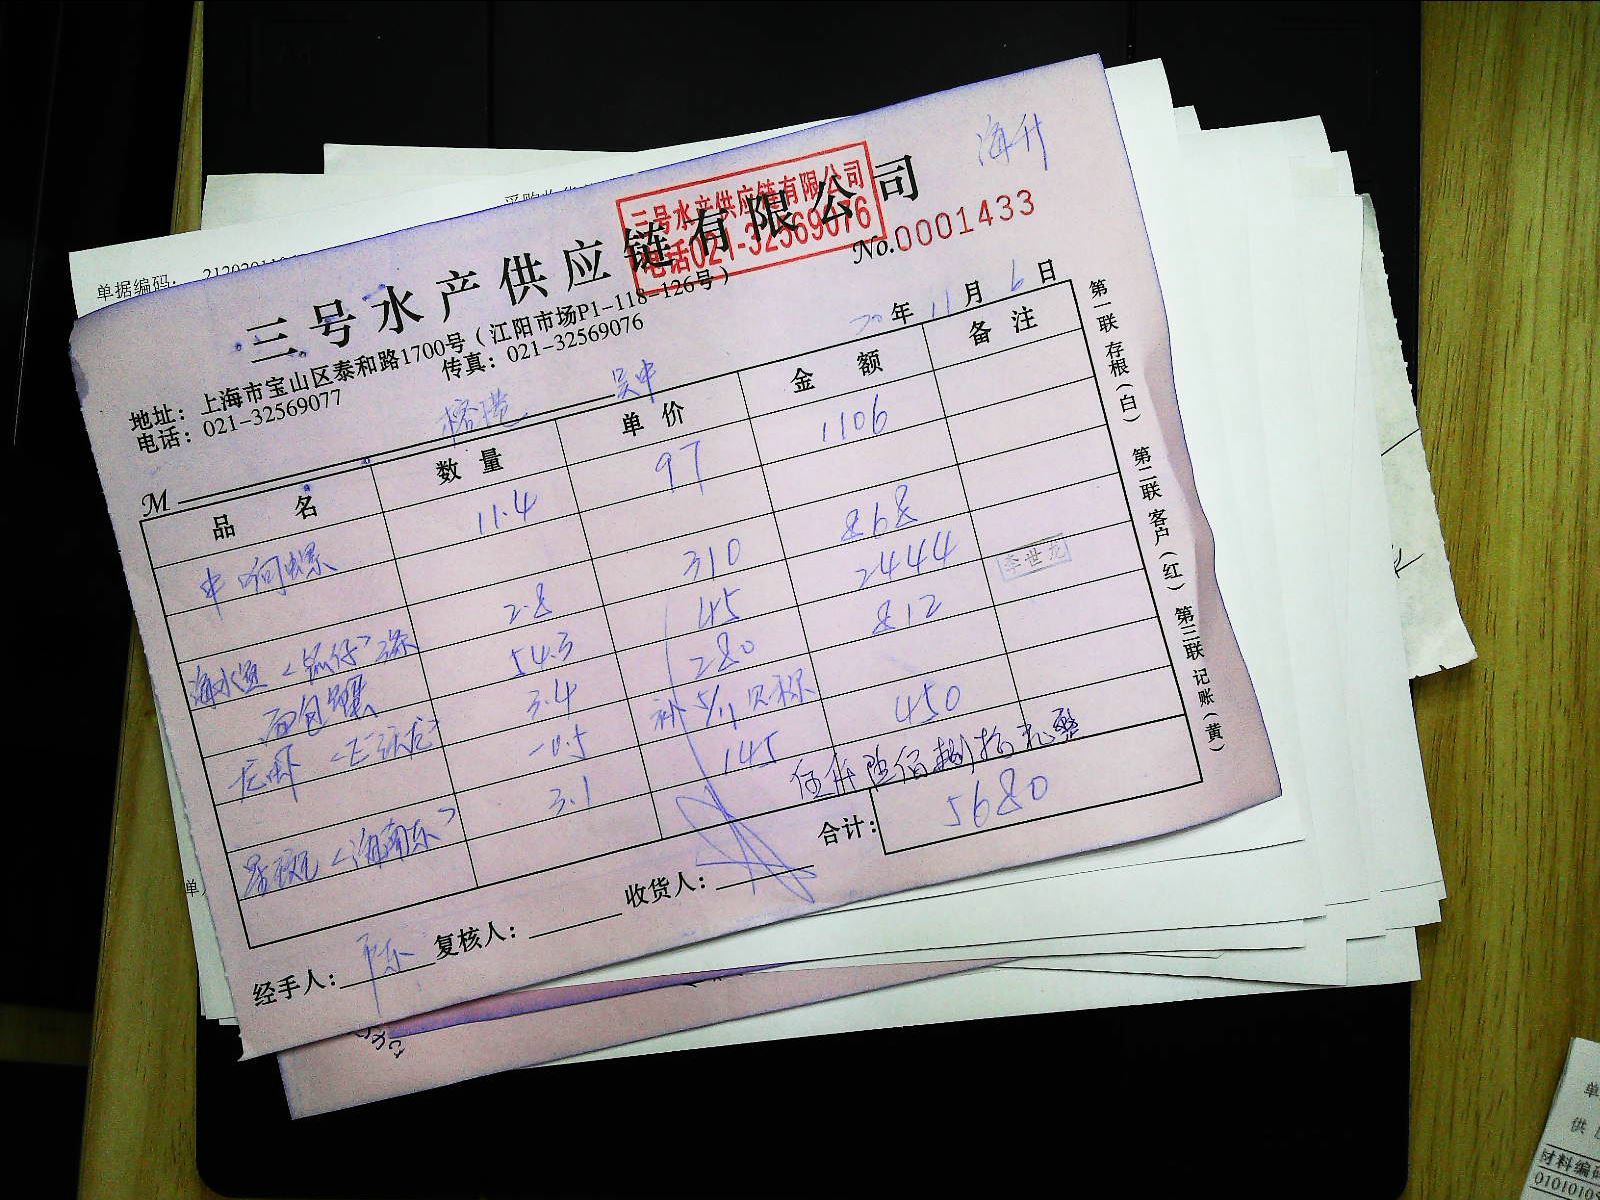 海升
三号水产供应链有限公司
电话021-32569076
三号水产供应链有限公司
No.0001433
地址：上海市宝山区泰和路1700号（江阳市场P1-118-126号）
电话：021-32569077 传真：021-32569076
20年11月6日
M 榕港 吴中
品名 数量 单价 金额 备注
中响螺 11.4 97 1106
2.8 310 868
面包蟹 54.3 45 2444
3.4 280 812
-0.5 补 5/11
星斑<海南东> 3.1 145 450
李世龙
伍仟陆佰捌拾元整
合计：5680
经手人： 复核人： 收货人：
第一联 存根（白） 第二联 客户（红） 第三联 记账（黄）
单据编码：
材料编码